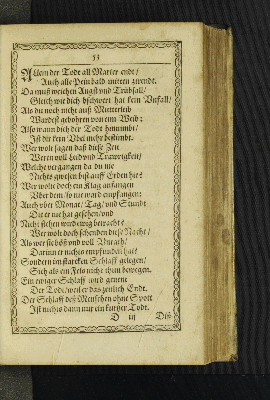 53
Allein der Todt all Marter endt/
Auch alle Pein bald mitten zwendt.
Da muß weichen Angst vnd Trübsall/
Gleich wie dich bschwert hat kein Vnfall/
Als du noch nicht auß Mutterleib
Wardest gebohren von eim Weib:
Also wann dich der Todt hinnimbt/
Ist dir kein Vbel mehr bestimbt.
Wer wolt sagen daß diese Zeit
Weren voll Leyd vnd Trawrigkeit/
Welche vergangen da du nie
Nichts gwesen bist auff Erden hie?
Wer wolte doch ein Klag anfangen
Vber dem/so nie ward empfangen:
Auch vber Monat/Tag/vnd Stundt
Die er nie hat gesehen/vnd
Nicht stehen wurd ewig betracht?
Wer wolt doch schenden diese Nacht/
Als wer sie böß vnd voll Vnrath/
Darinn er nichts empfunden hat?
Sondern im starcken Schlaff gelegen/
Sich als ein Fels nicht thun bewegen.
Ein ewiger Schlaff wird genent
Der Todt/weil er das zeitlich Endt.
Der Schlaff deß Menschen ohne Spott
Ist nichts dann nur ein kurtzer Todt.
D iij
Diß